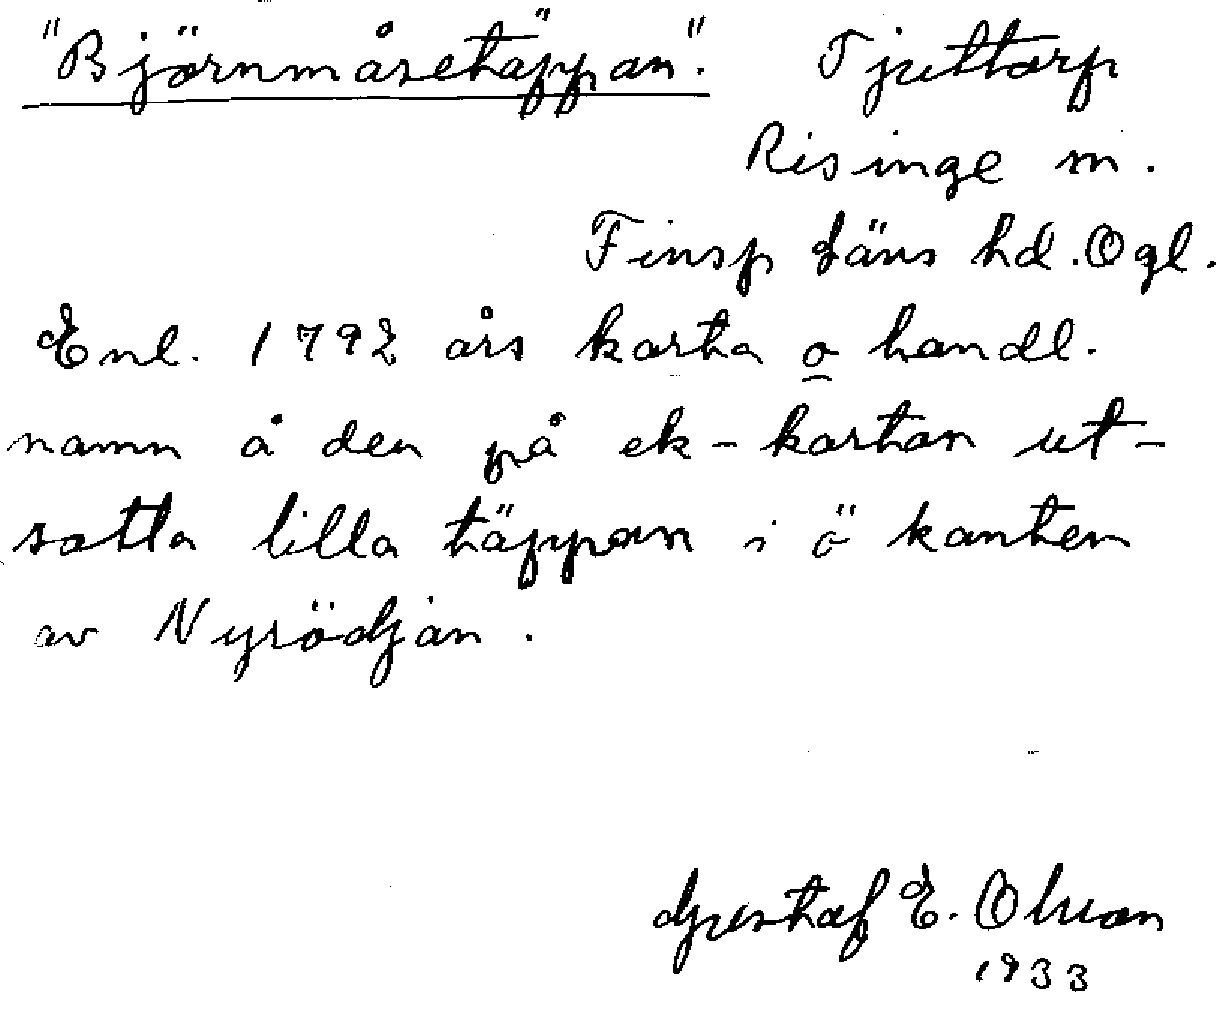 "Björnmåsetäppan". Tjuttorp
Risinge sn.
Finsp läns hd. Ögl.
Enl. 1792 års karta o handl.
namn å den på ek-kartan ut-
satta lilla täppan i ö kanten
av Nyrödjan.
Gustaf E. Olsson
1933